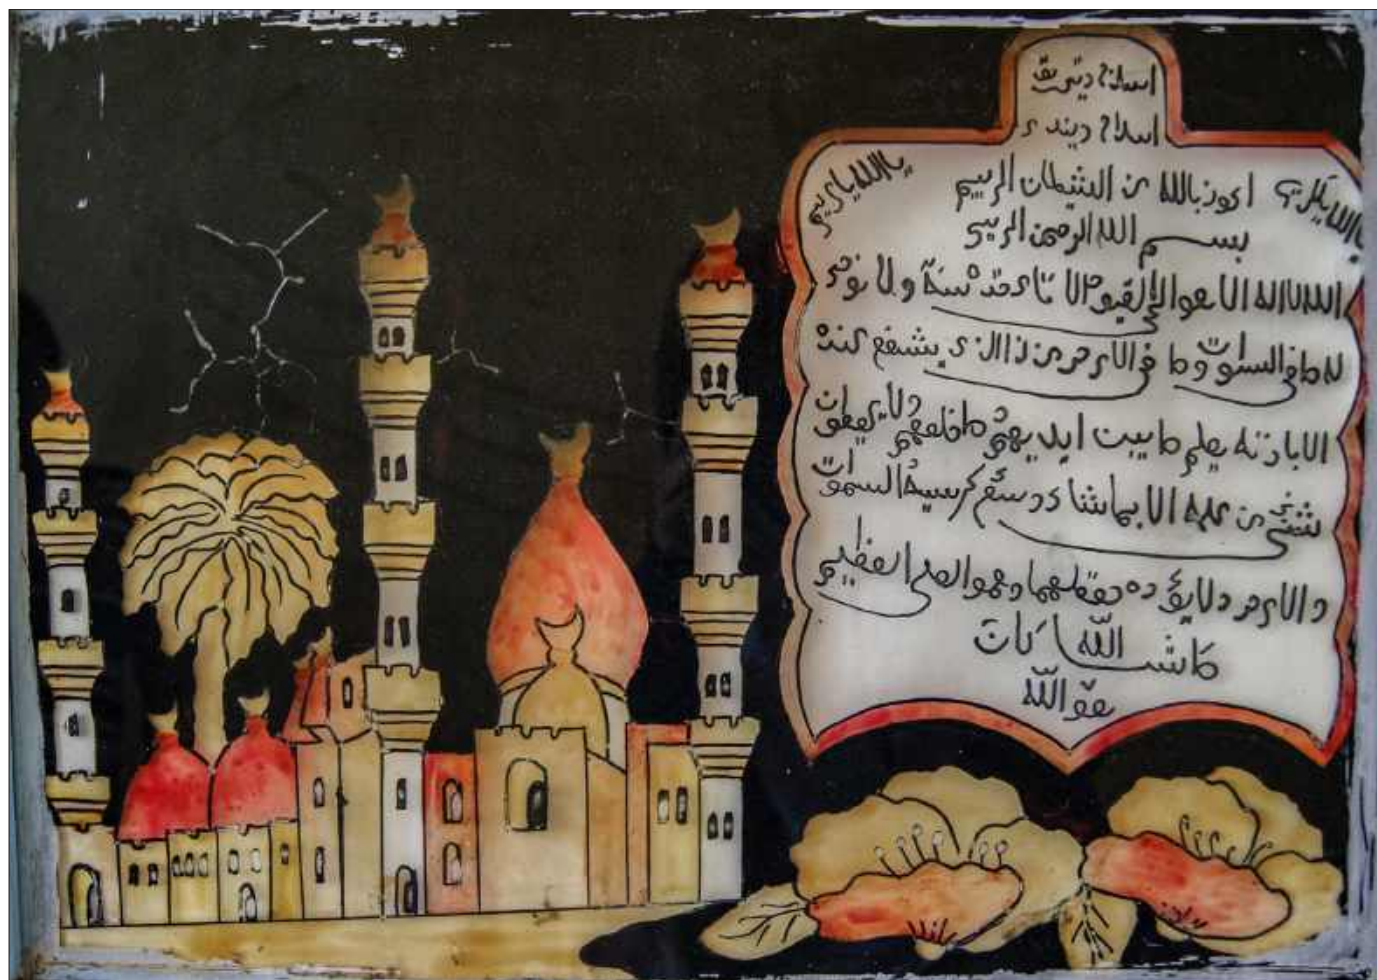 اعوذ بالله من الشيطان الرجيم
يا الله يا كريم
بسم الله الرحمن الرحيم
الله لا اله الا هو الحي القيوم لا تاءخذه سنة ولا نوم
له ما في السموت وما في الارض من ذا الذي يشفع عنده
الا باذنه يعلم ما بين ايديهم وما خلفهم ولا يحيطون
بشيء من علمه الا بما شاء وسع كرسيه السموت
والارض ولا يؤده حفظهما وهو العلي العظيم
ما شاء الله كان
هو الله